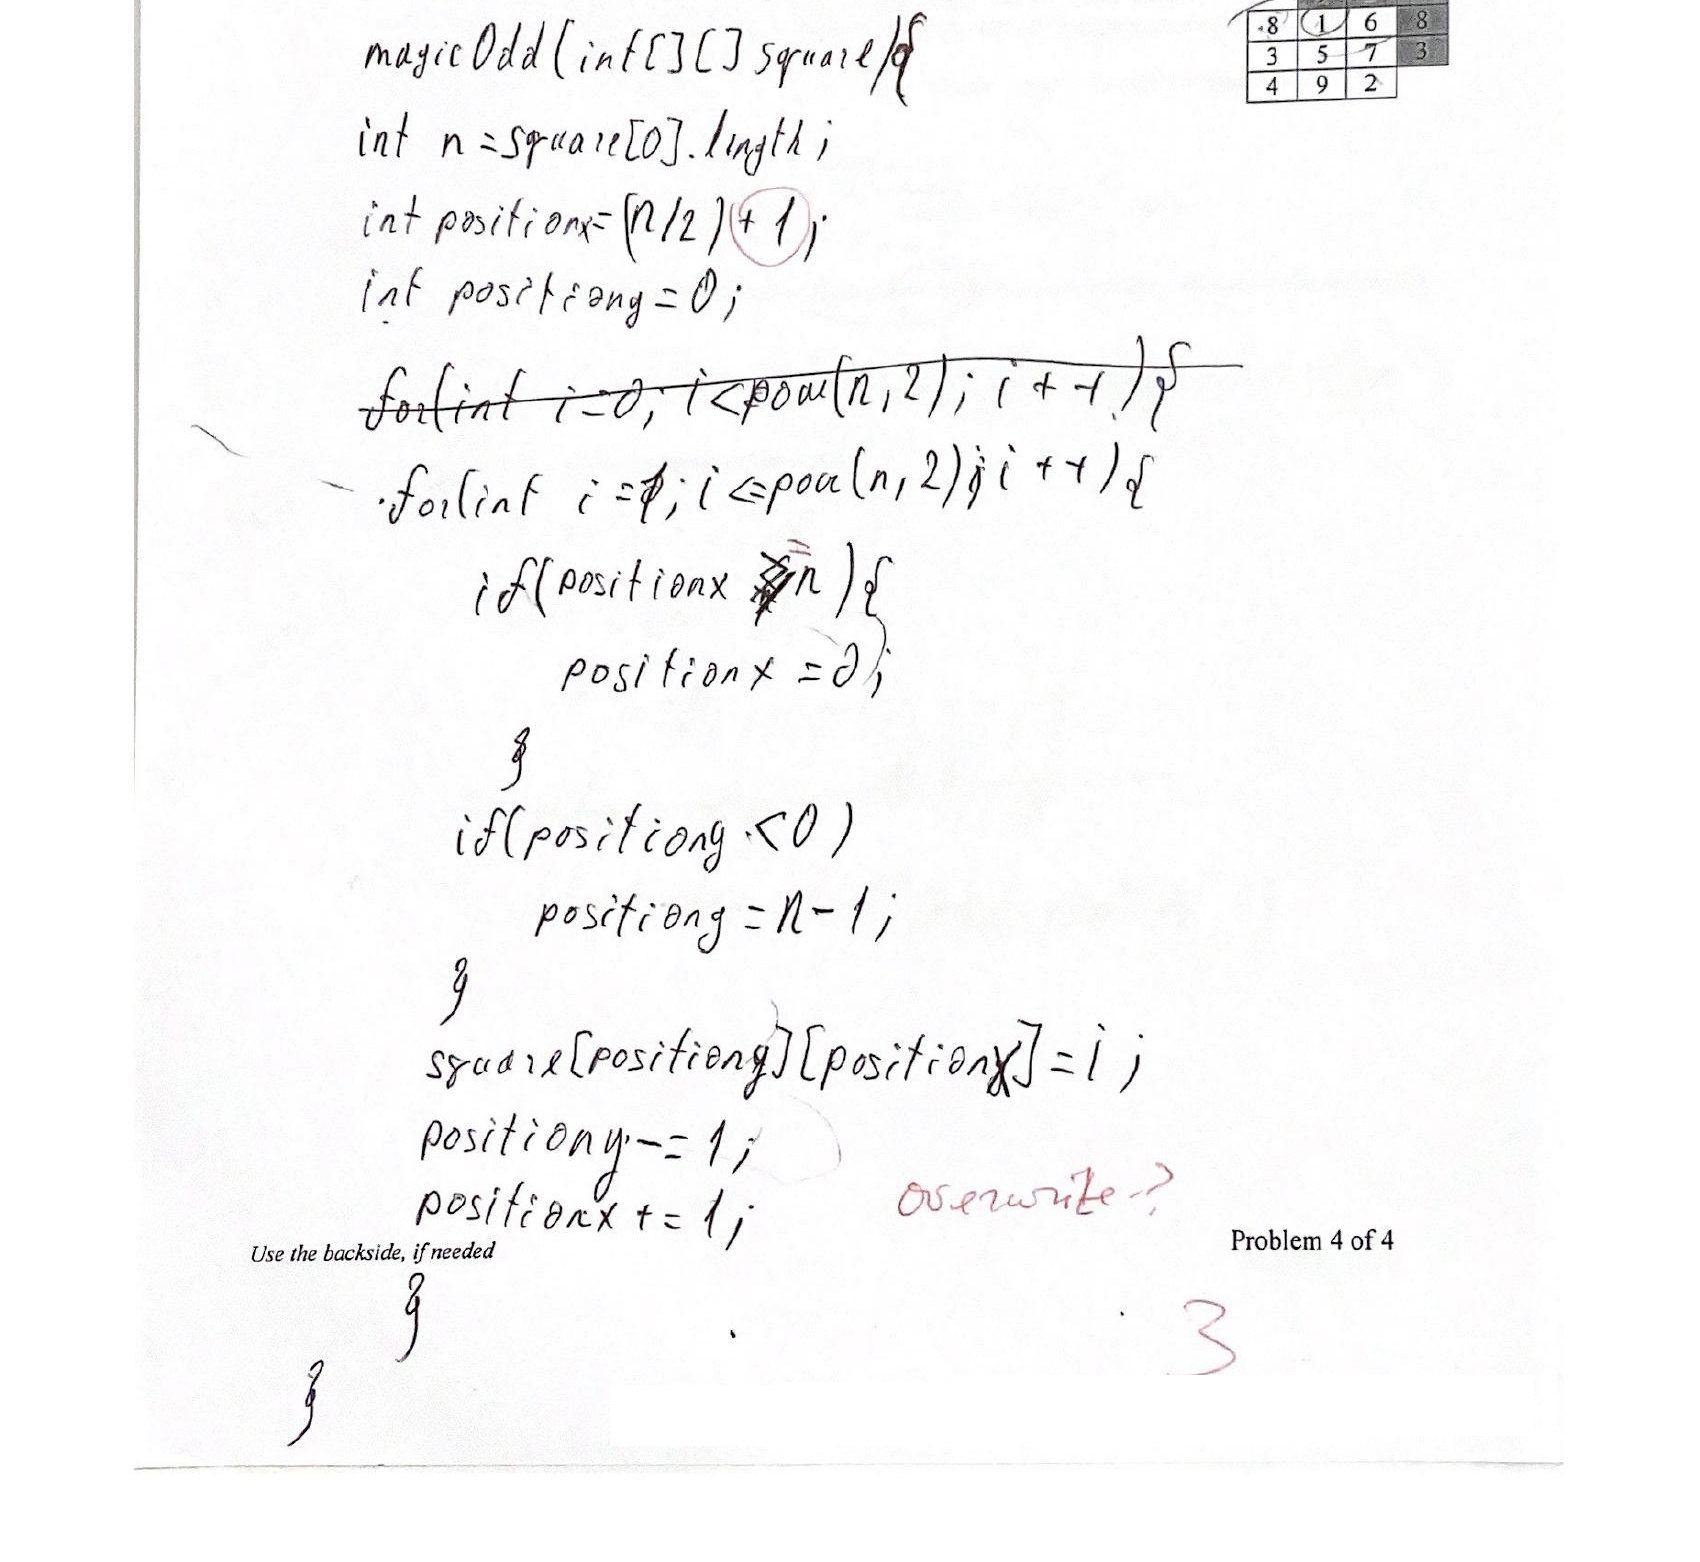 8 1 6 8
3 5 7 3
4 9 2
magicOdd(int[][] square){
int n=square[0].length;
int positionx=(n/2)+1;
int positiony=0;
for(int i=0; i<pow(n,2); i++){
for(int i=1; i<=pow(n,2); i++){
if(positionx = n){
positionx=0;
}
if(positiony<0)
positiony=n-1;
}
square[positiony][positionx]=i;
positiony-=1;
positionx+=1;
overwrite?
Use the backside, if needed
Problem 4 of 4
}
3
}